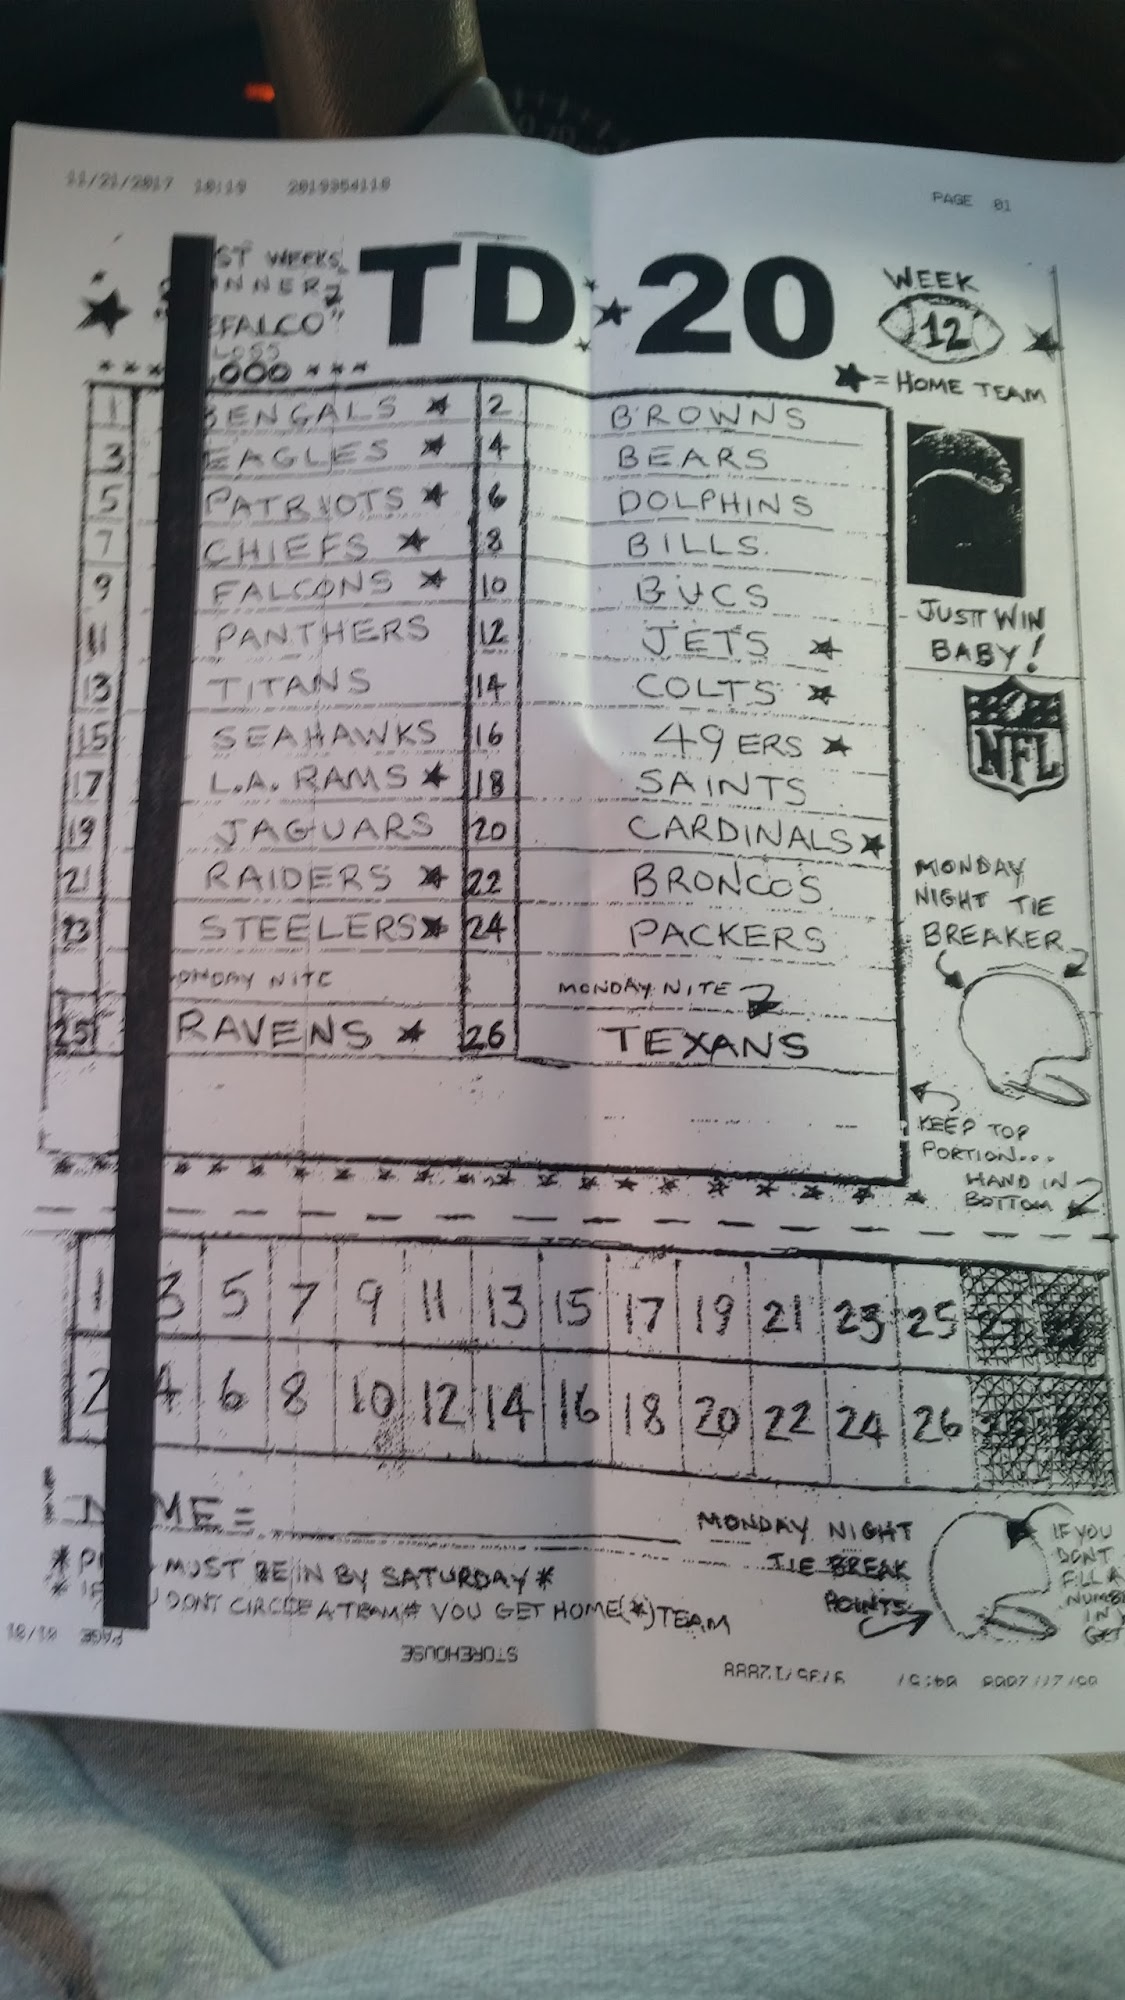 11/21/2017 10:19 2019354110
PAGE 01
ST WEEKS
NNER
FALCO"
LOSS
,000
TD 20
WEEK
12
★ = HOME TEAM
1 BENGALS ★ 2 BROWNS
3 EAGLES ★ 4 BEARS
5 PATRIOTS ★ 6 DOLPHINS
7 CHIEFS ★ 8 BILLS
9 FALCONS ★ 10 BUCS
11 PANTHERS 12 JETS ★
13 TITANS 14 COLTS ★
15 SEAHAWKS 16 49ERS ★
17 L.A. RAMS ★ 18 SAINTS
19 JAGUARS 20 CARDINALS ★
21 RAIDERS ★ 22 BRONCOS
23 STEELERS ★ 24 PACKERS
ONDAY NITE MONDAY NITE
25 RAVENS ★ 26 TEXANS
JUST WIN
BABY!
NFL
MONDAY
NIGHT TIE
BREAKER
KEEP TOP
PORTION...
HAND IN
BOTTOM
1 3 5 7 9 11 13 15 17 19 21 23 25
2 4 6 8 10 12 14 16 18 20 22 24 26
N ME =
MONDAY NIGHT
TIE BREAK
POINTS
* P MUST BE IN BY SATURDAY *
* IF U DONT CIRCLE A TEAM # YOU GET HOME (*) TEAM
IF YOU
DONT
FILL A
NUMBE
IN
GET
PAGE 01/01
STOREHOUSE